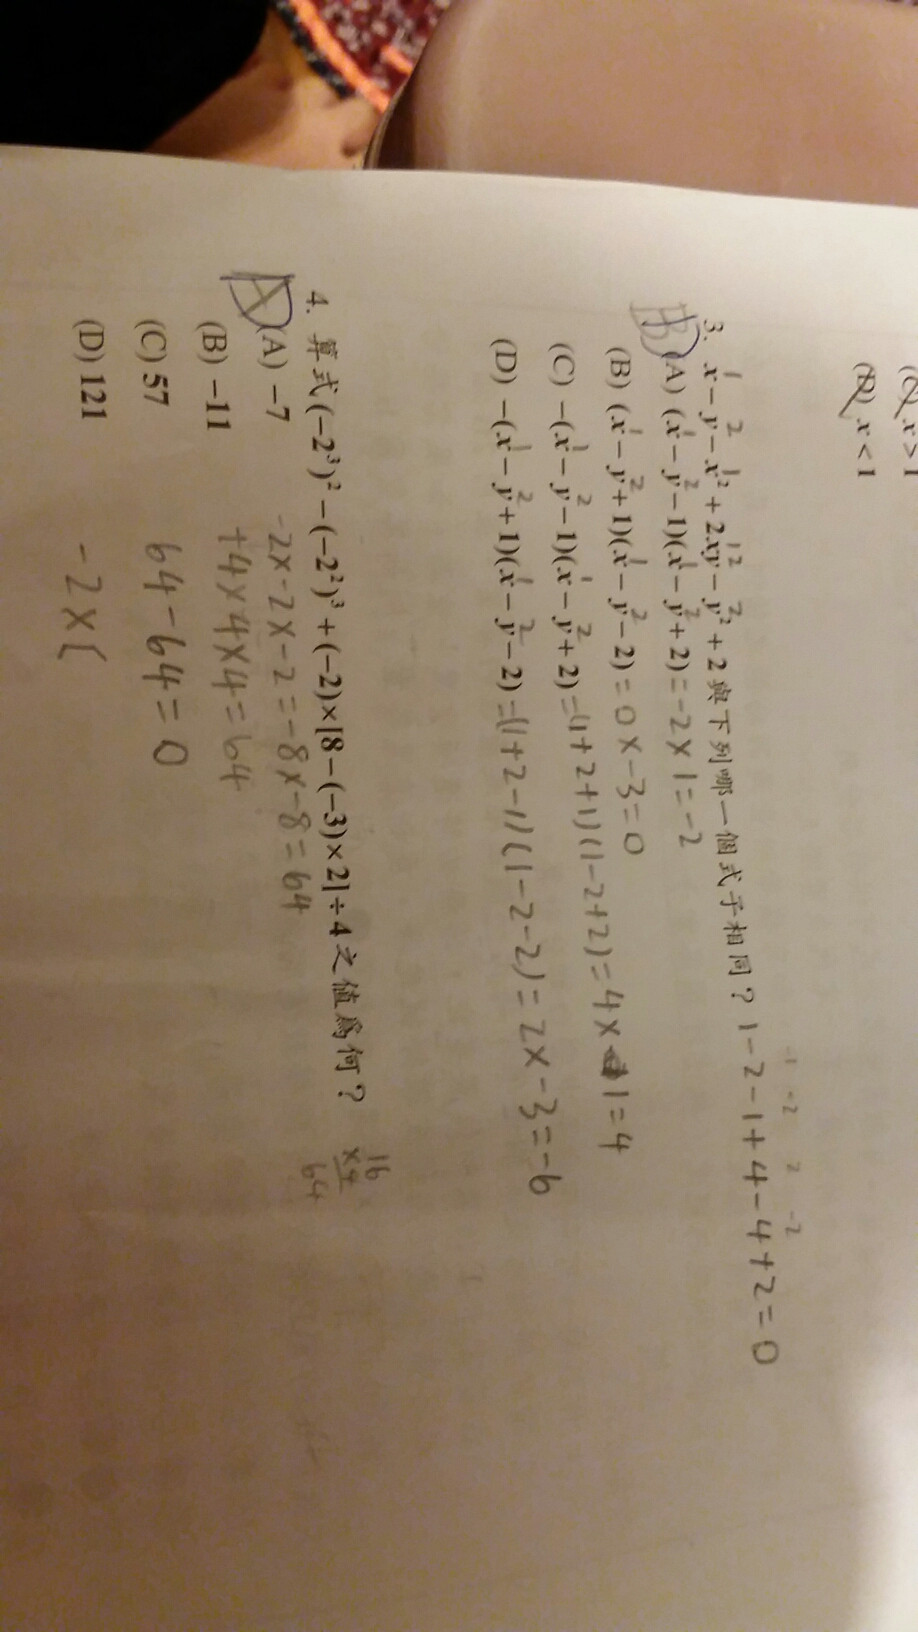 (C) x > 1
(D) x < 1
3. x − y − x² + 2xy − y² + 2 與下列哪一個式子相同？ 1 - 2 - 1 + 4 - 4 + 2 = 0
(A) (x − y − 1)(x − y + 2) = -2 × 1 = -2
(B) (x − y + 1)(x − y − 2) = 0 × -3 = 0
(C) −(x − y − 1)(x − y + 2) = (1+2+1)(1-2+2) = 4 × 1 = 4
(D) −(x − y + 1)(x − y − 2) = (1+2-1)(1-2-2) = 2 × -3 = -6
4. 算式 (−2³)² − (−2²)³ + (−2)×[8 − (−3)×2]÷4 之值為何？
16
×4
64
(A) −7 -2×-2×-2 = -8×-8 = 64
(B) −11 +4×4×4 = 64
(C) 57 64-64 = 0
(D) 121 -2×[